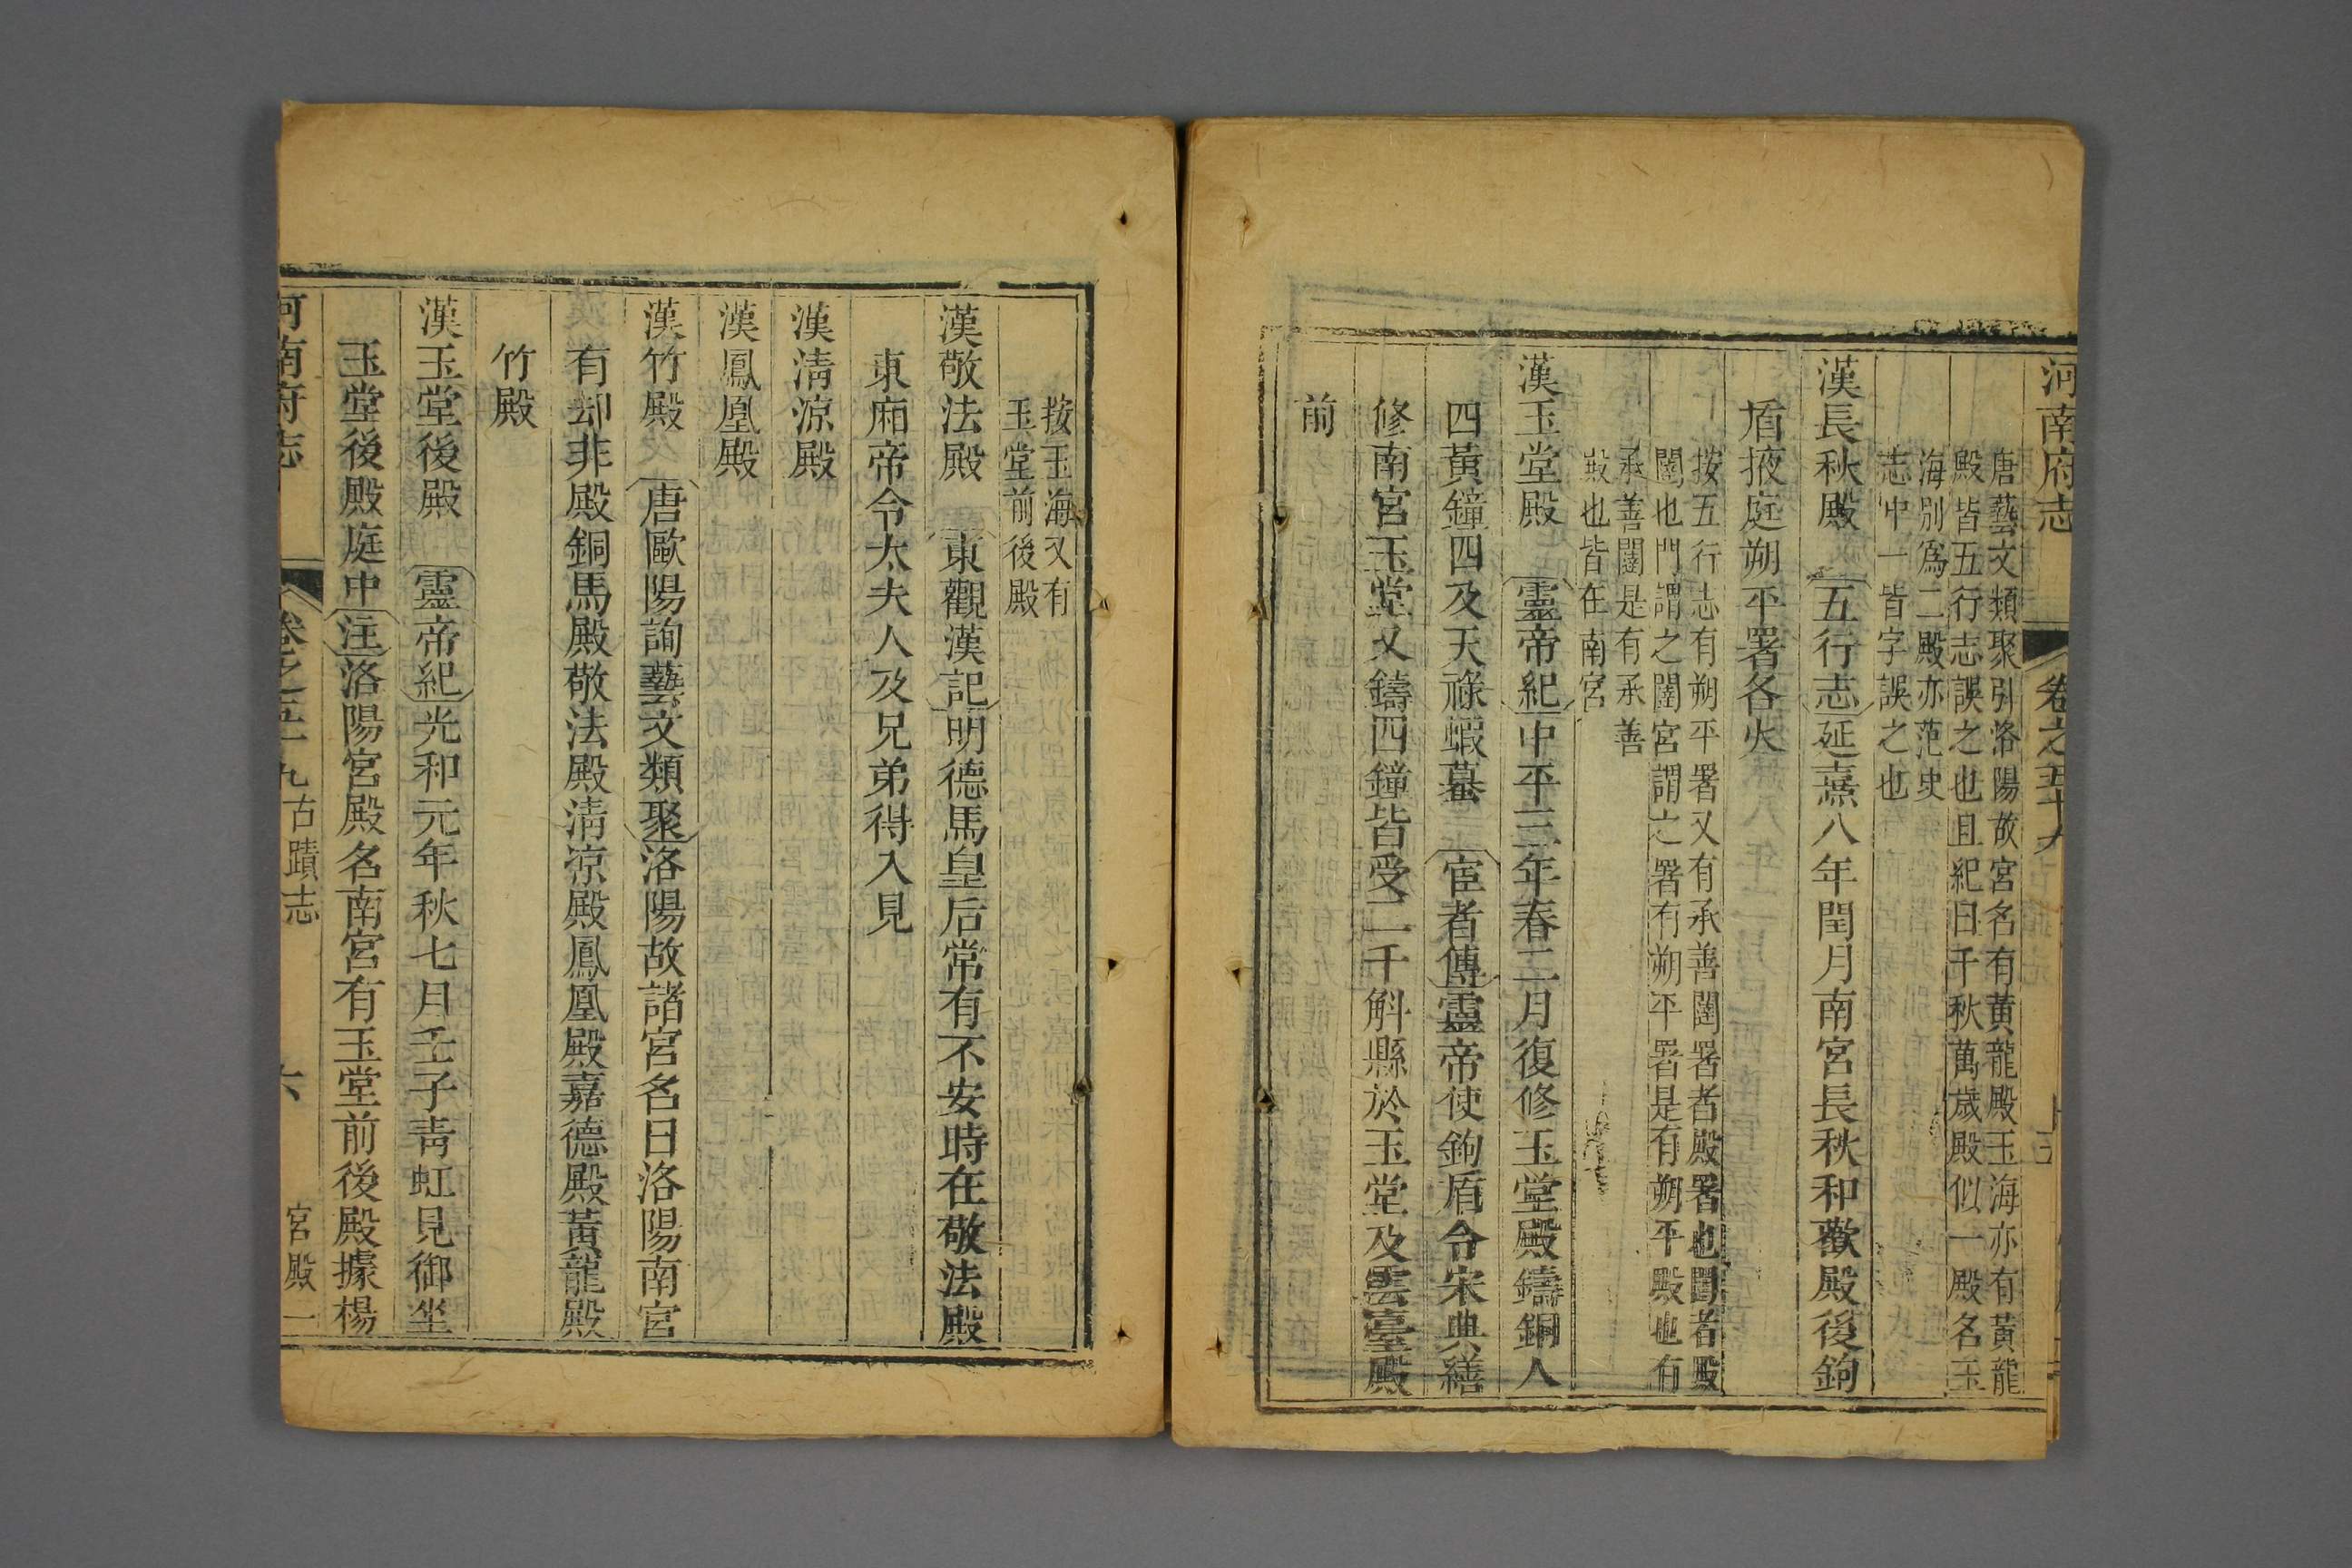 河南府志
卷之五十九
唐藝文類聚引洛陽故宮名有黃龍殿玉海亦有黃龍
殿皆五行志誤之也且紀曰千秋萬歲殿似一殿名玉
海別爲二殿亦范史
志中一皆字誤之也
漢長秋殿 五行志延熹八年閏月南宮長秋和歡殿後鉤
盾掖庭朔平署各火
按五行志有朔平署又有承善闥署者殿署也闥者殿
闥也門謂之闥宮謂之署有朔平署是有朔平殿也有
承善闥是有承善
殿也皆在南宮
漢玉堂殿 靈帝紀中平三年春二月復修玉堂殿鑄銅人
四黃鐘四及天祿蝦蟇 宦者傳靈帝使鉤盾令宋典繕
修南宮玉堂又鑄四鐘皆受二千斛縣於玉堂及雲臺殿
前
按玉海又有
玉堂前後殿
漢敬法殿 東觀漢記明德馬皇后常有不安時在敬法殿
東廂帝令太夫人及兄弟得入見
漢清涼殿
漢鳳凰殿
漢竹殿 唐歐陽詢藝文類聚洛陽故諸宮名曰洛陽南宮
有却非殿銅馬殿敬法殿清涼殿鳳凰殿嘉德殿黃龍殿
竹殿
漢玉堂後殿 靈帝紀光和元年秋七月壬子靑虹見御坐
玉堂後殿庭中注洛陽宮殿名南宮有玉堂前後殿據楊
河南府志
卷之五十九
古蹟志
六
宮殿一